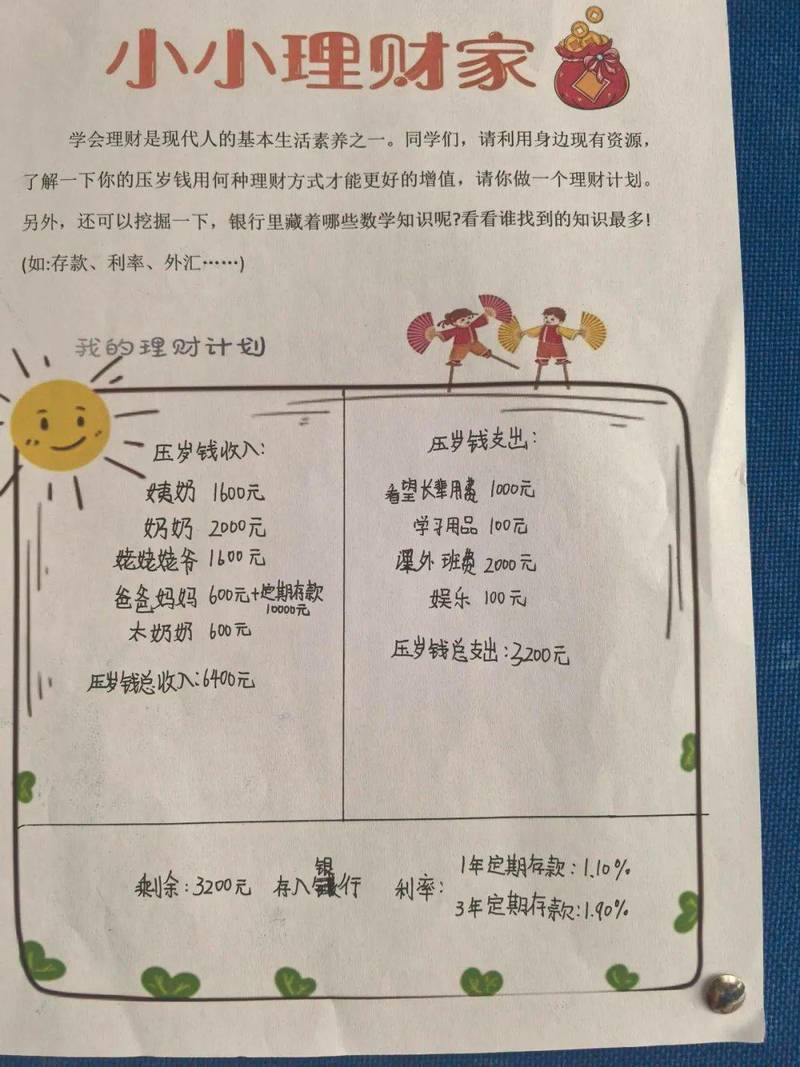 小小理财家
学会理财是现代人的基本生活素养之一。同学们，请利用身边现有资源，
了解一下你的压岁钱用何种理财方式才能更好的增值，请你做一个理财计划。
另外，还可以挖掘一下，银行里藏着哪些数学知识呢?看看谁找到的知识最多!
(如:存款、利率、外汇……)
我的理财计划
压岁钱收入:
姨奶 1600元
奶奶 2000元
姥姥姥爷 1600元
爸爸,妈妈 600元+定期存款
10000元
太奶奶 600元
压岁钱总收入:6400元
压岁钱支出:
看望长辈用费 1000元
学习用品 100元
课外班费 2000元
娱乐 100元
压岁钱总支出:3200元
剩余:3200元 存入银行 利率:
1年定期存款:1.10%
3年定期存款:1.90%